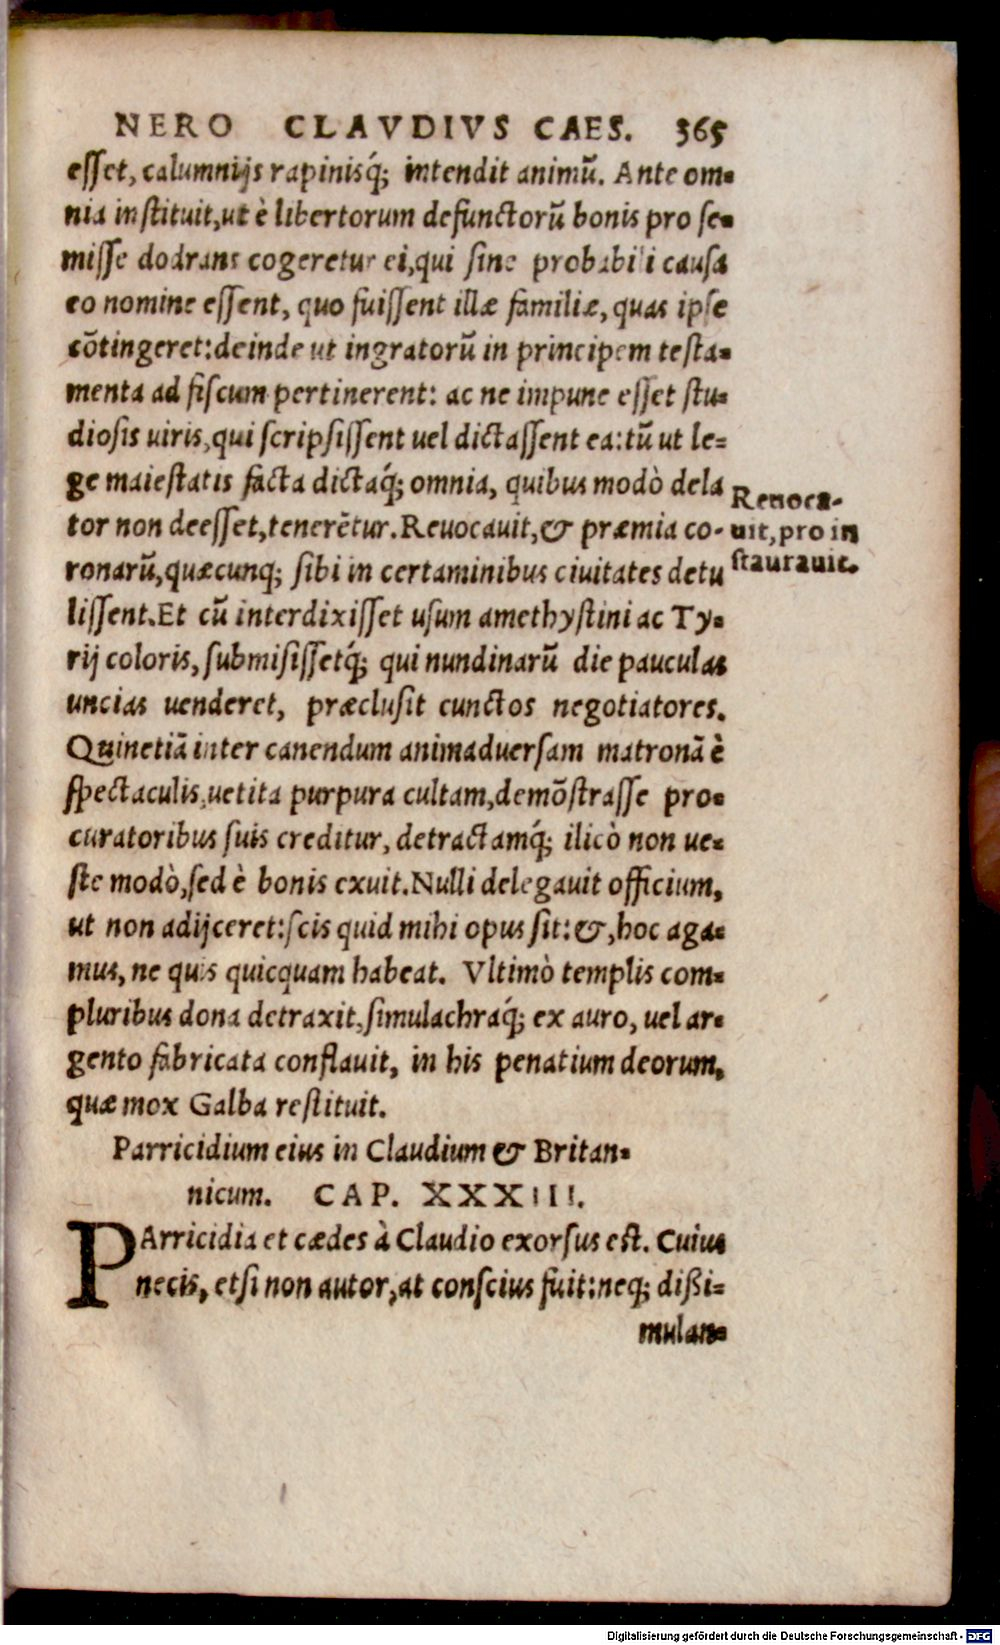 NERO CLAVDIVS CAES. 365
esset, calumnijs rapinisq́; intendit animũ. Ante om-
nia instituit, ut è libertorum defunctorũ bonis pro se-
misse dodrans cogeretur ei, qui sine probabili causa
eo nomine essent, quo fuissent illæ familiæ, quas ipse
cõtingeret: deinde ut ingratorũ in principem testa-
menta ad fiscum pertinerent: ac ne impune esset stu-
diosis uiris, qui scripsissent uel dictassent ea: tũ ut le-
ge maiestatis facta dictaq́; omnia, quibus modò dela
tor non deesset, tenerẽtur. Reuocauit, & præmia co-
ronarũ, quæcunq; sibi in certaminibus ciuitates detu
lissent. Et cũ interdixisset usum amethystini ac Ty-
rij coloris, submisissetq́; qui nundinarũ die pauculas
uncias uenderet, præclusit cunctos negotiatores.
Quinetiã inter canendum animaduersam matronã è
spectaculis, uetita purpura cultam, demõstrasse pro-
curatoribus suis creditur, detractamq́; ilicò non ue-
ste modò, sed è bonis exuit. Nulli delegauit officium,
ut non adijceret: scis quid mihi opus sit: &, hoc aga-
mus, ne quis quicquam habeat. Vltimò templis com-
pluribus dona detraxit, simulachraq́; ex auro, uel ar-
gento fabricata conflauit, in his penatium deorum,
quæ mox Galba restituit.
Reuoca-
uit, pro in
staurauit.
Parricidium eius in Claudium & Britan-
nicum. CAP. XXXIII.
PArricidia et cædes à Claudio exorsus est. Cuius
necis, etsi non autor, at conscius fuit: neq; dißi-
mulan-
Digitalisierung gefördert durch die Deutsche Forschungsgemeinschaft - DFG